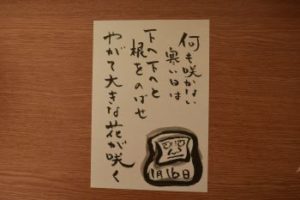 何も咲かない
寒い日は
下へ下へと
根をのばせ
やがて大きな花が咲く
1月16日